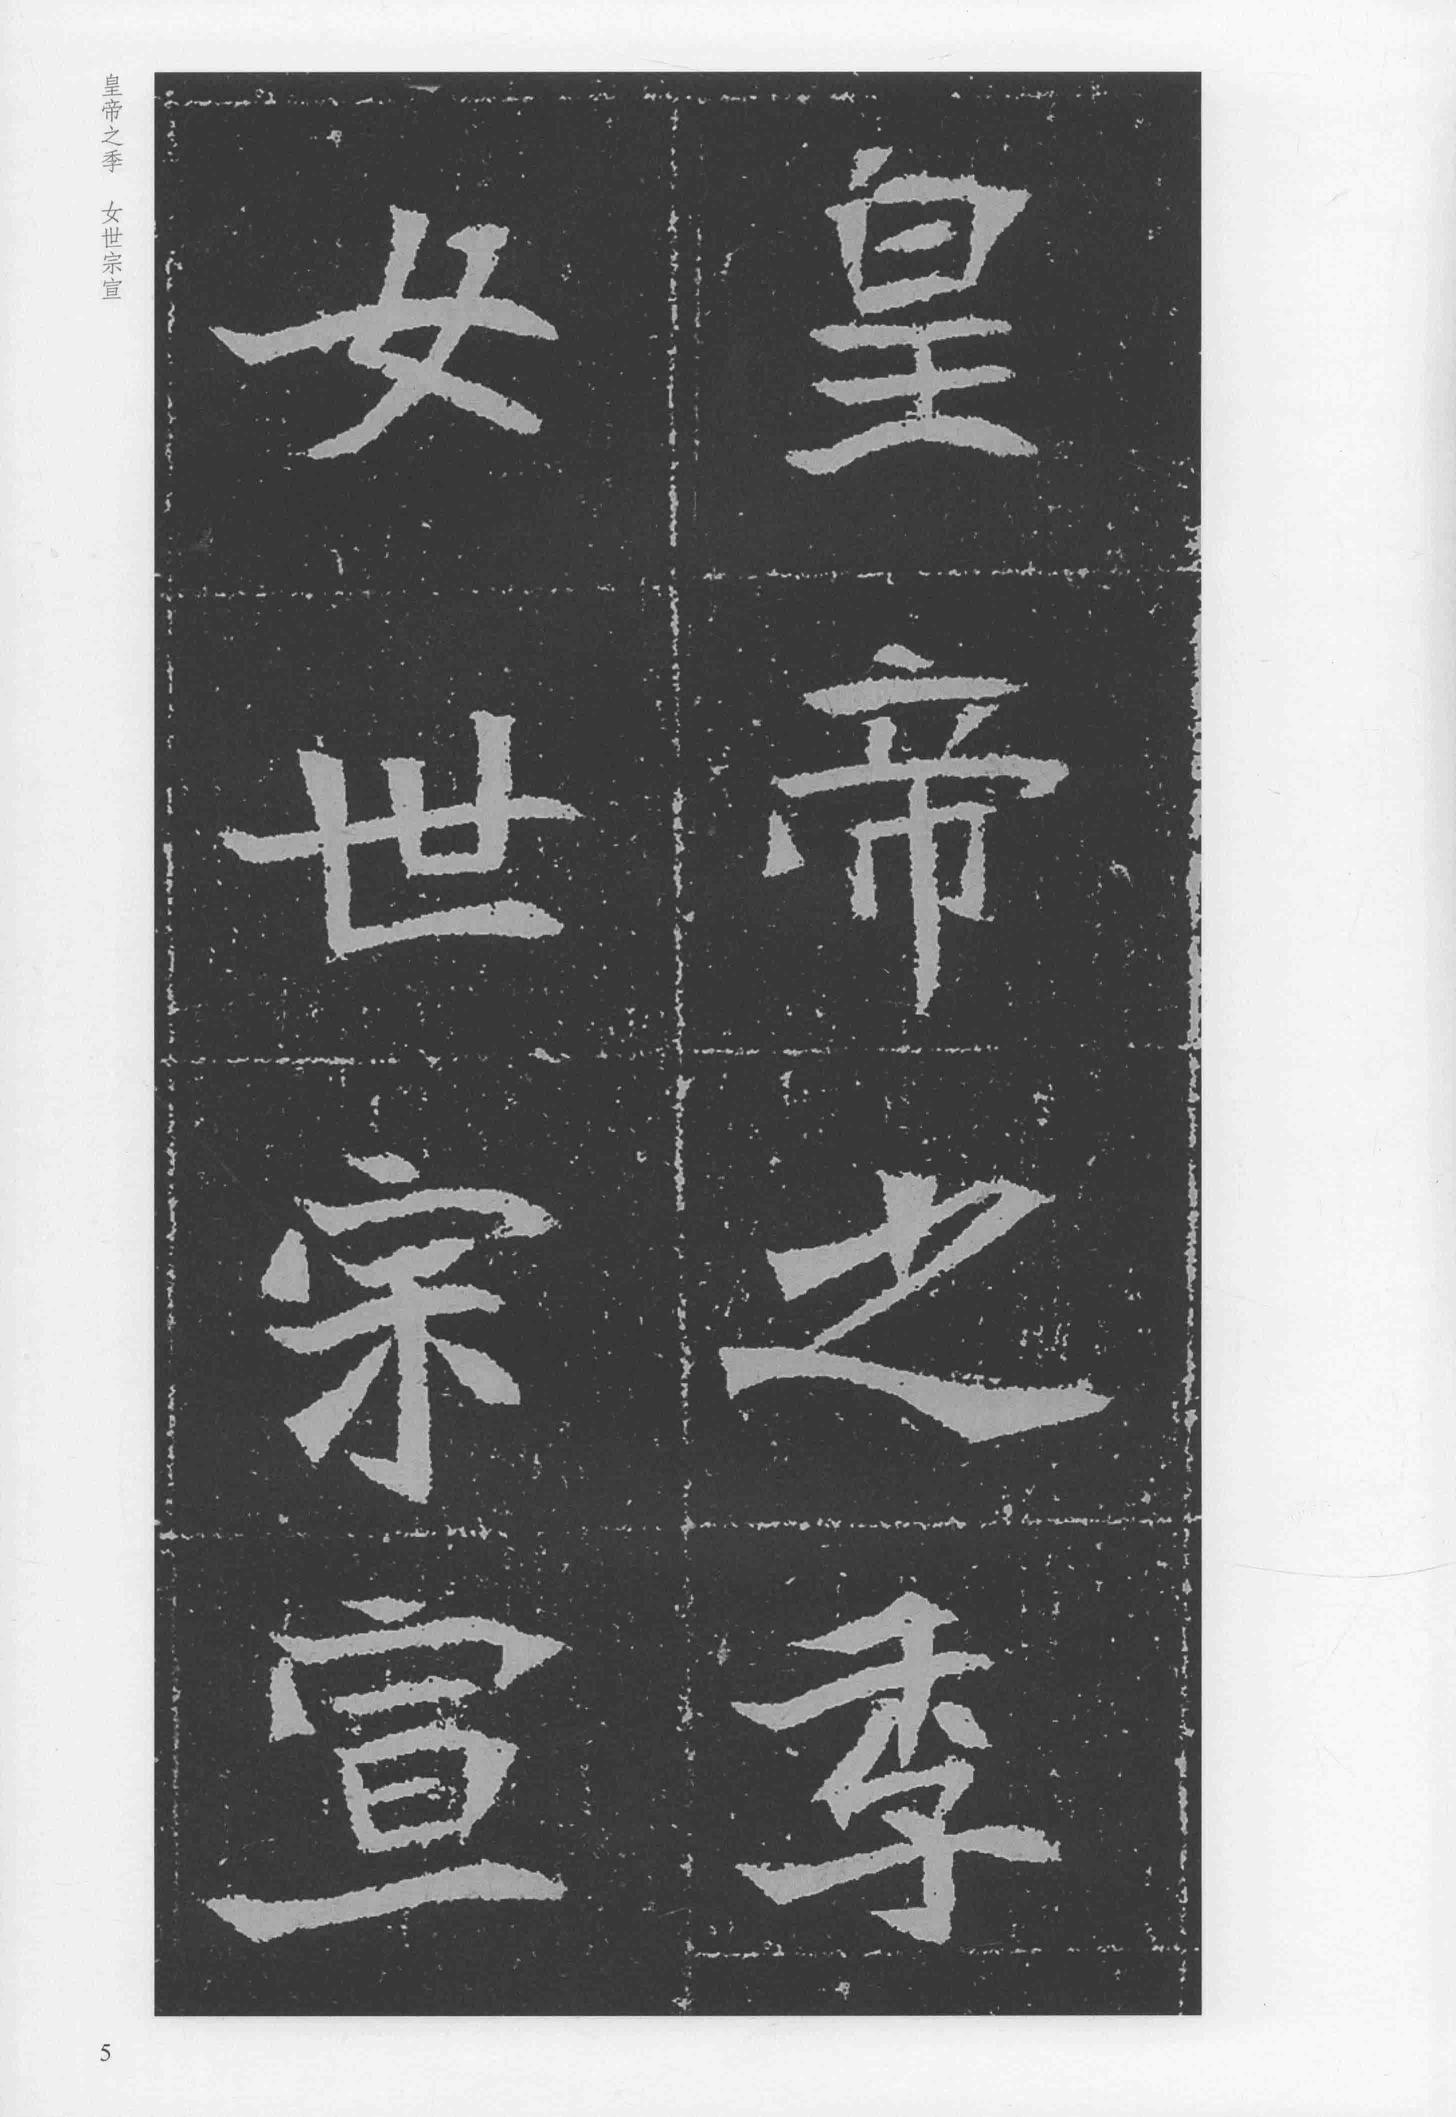 皇帝之季
女世宗宣
皇帝之季　女世宗宣
5